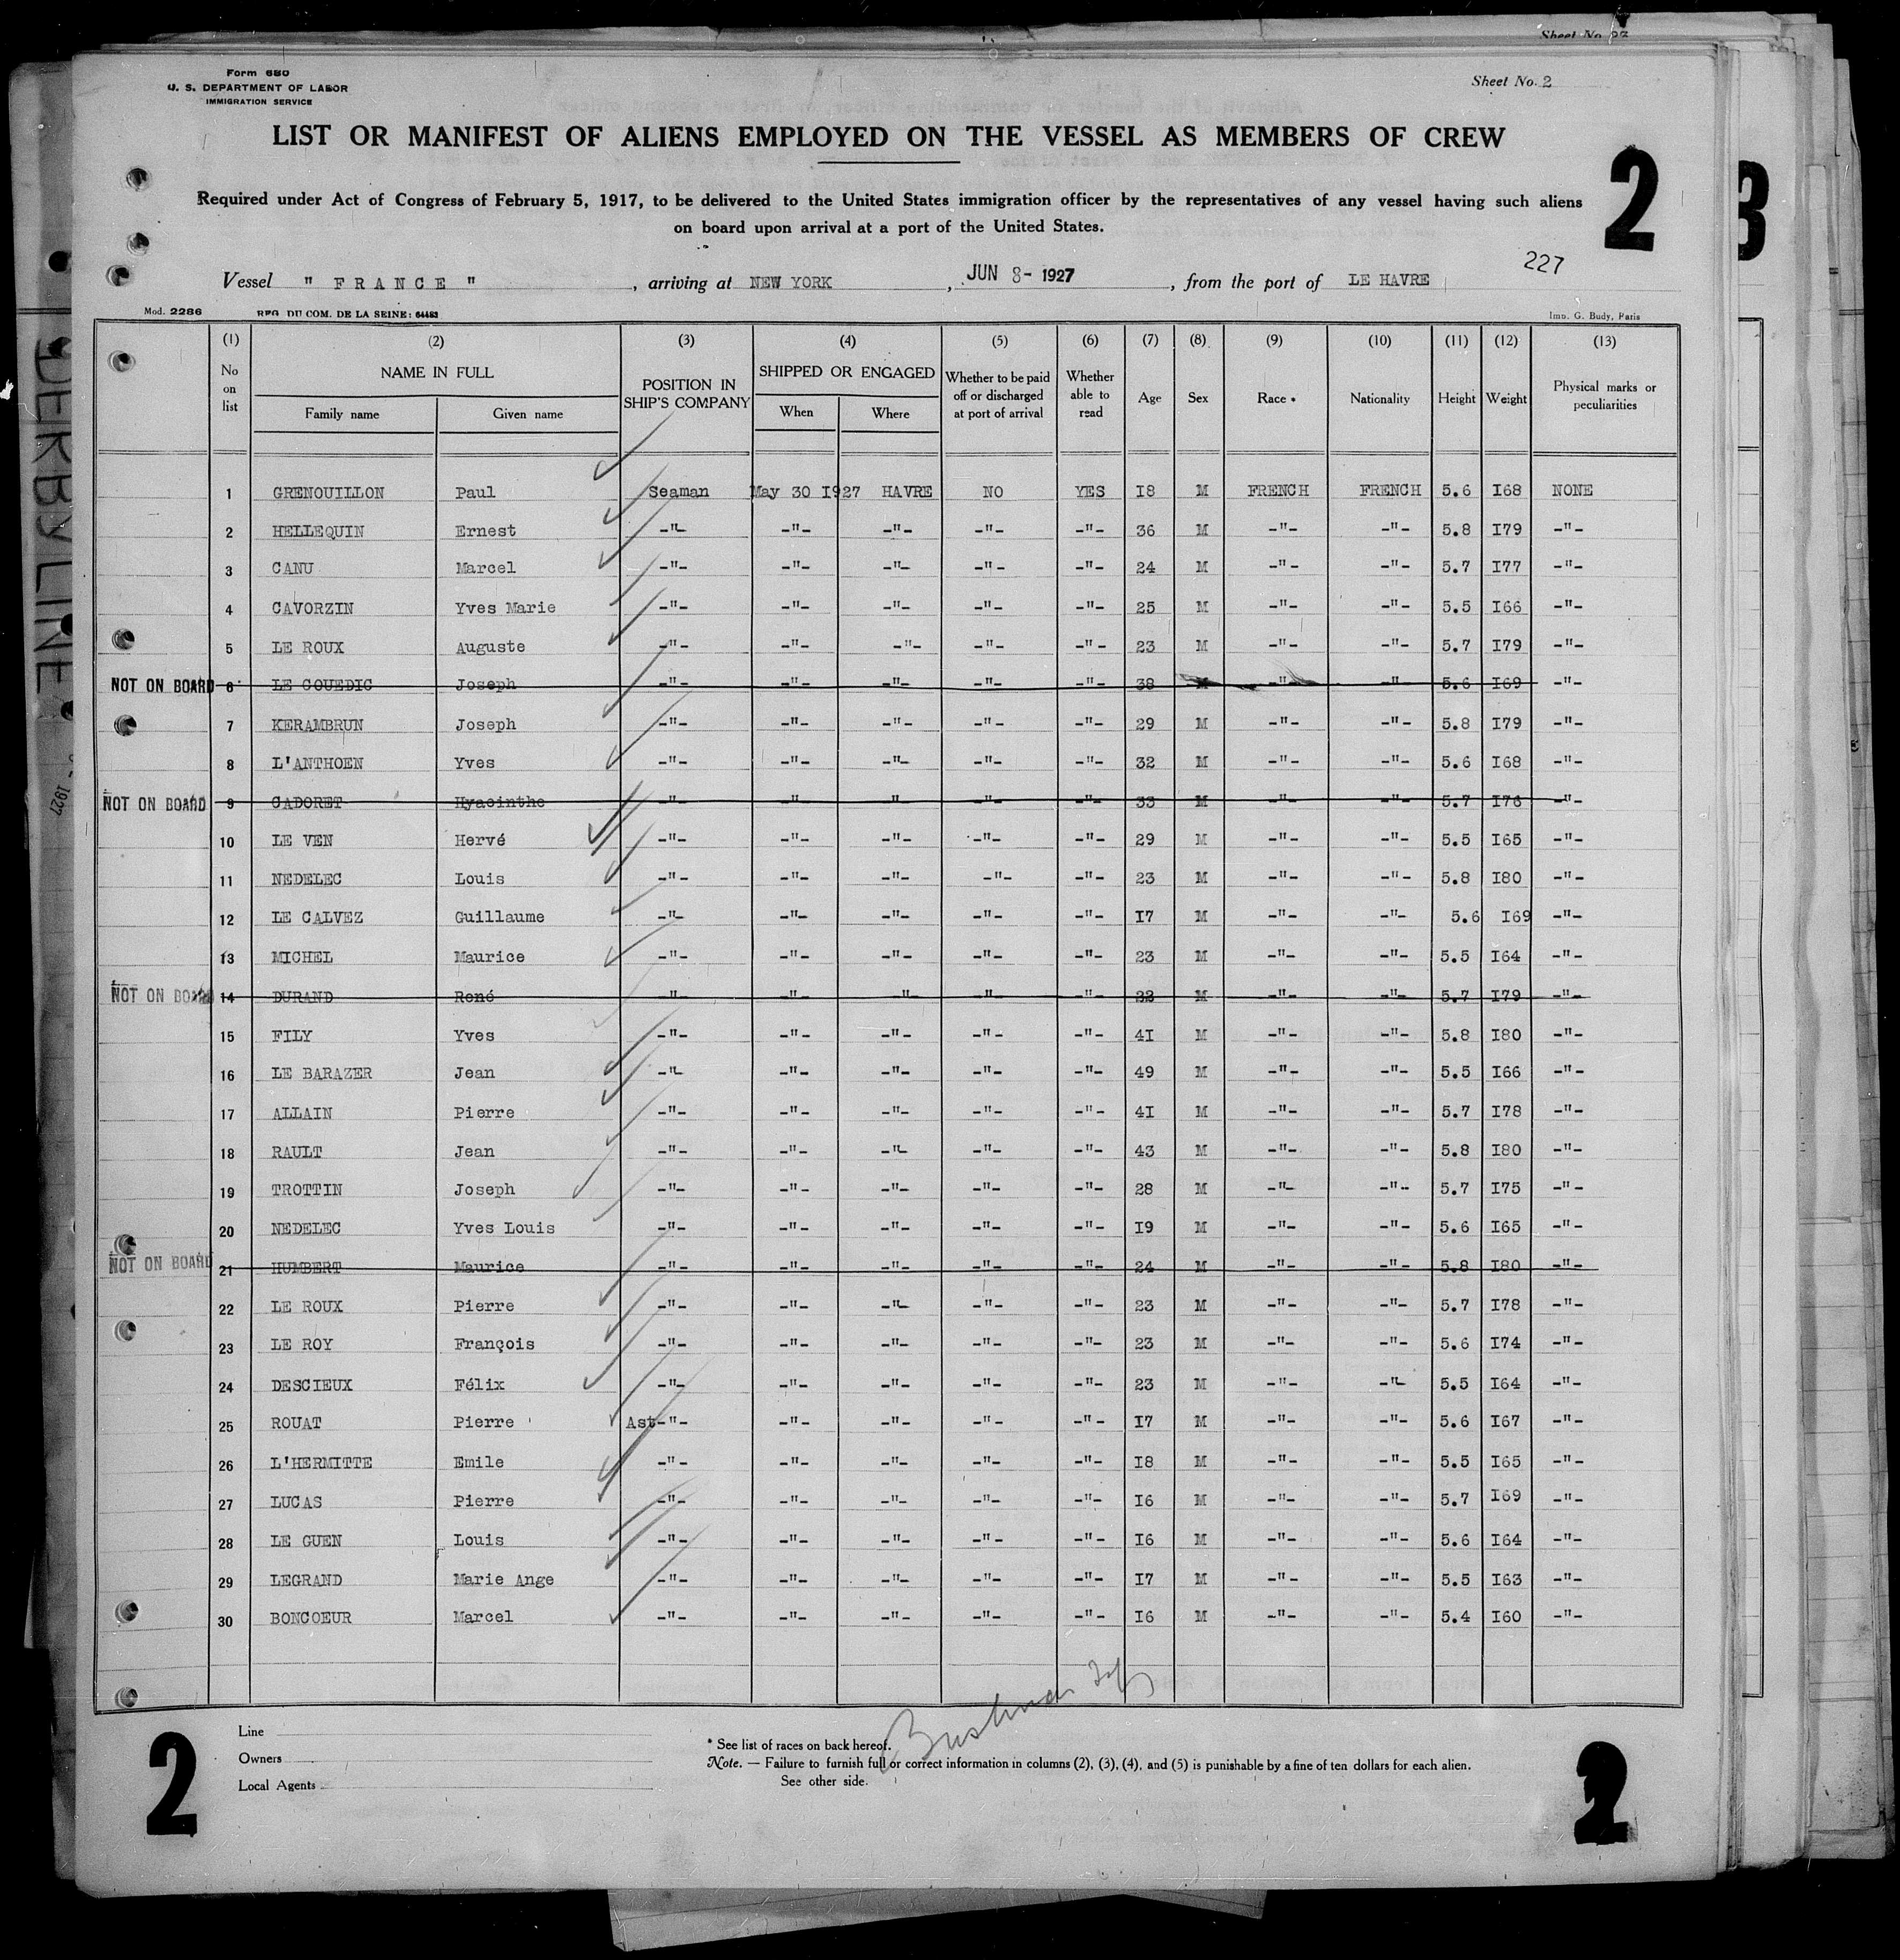 Sheet No. 2
Form 680
U. S. DEPARTMENT OF LABOR
IMMIGRATION SERVICE
LIST OR MANIFEST OF ALIENS EMPLOYED ON THE VESSEL AS MEMBERS OF CREW
2
Required under Act of Congress of February 5, 1917, to be delivered to the United States immigration officer by the representatives of any vessel having such aliens
on board upon arrival at a port of the United States.
227
Vessel " FRANCE ", arriving at NEW YORK, JUN 8- 1927, from the port of LE HAVRE
Mod. 2286 REG. DU COM. DE LA SEINE: 64483 Imp. G. Budy, Paris
(1) (2) (3) (4) (5) (6) (7) (8) (9) (10) (11) (12) (13)
No on list NAME IN FULL Family name Given name POSITION IN SHIP'S COMPANY SHIPPED OR ENGAGED When Where Whether to be paid off or discharged at port of arrival Whether able to read Age Sex Race * Nationality Height Weight Physical marks or peculiarities
1 GRENOUILLON Paul Seaman May 30 I927 HAVRE NO YES I8 M FRENCH FRENCH 5.6 I68 NONE
2 HELLEQUIN Ernest -"- -"- -"- -"- -"- 36 M -"- -"- 5.8 I79 -"-
3 CANU Marcel -"- -"- -"- -"- -"- 24 M -"- -"- 5.7 I77 -"-
4 CAVORZIN Yves Marie -"- -"- -"- -"- -"- 25 M -"- -"- 5.5 I66 -"-
5 LE ROUX Auguste -"- -"- -"- -"- -"- 23 M -"- -"- 5.7 I79 -"-
NOT ON BOARD 6 LE COUEDIC Joseph -"- -"- -"- -"- -"- 38 M -"- -"- 5.6 I69 -"-
7 KERAMBRUN Joseph -"- -"- -"- -"- -"- 29 M -"- -"- 5.8 I79 -"-
8 L'ANTHOEN Yves -"- -"- -"- -"- -"- 32 M -"- -"- 5.6 I68 -"-
NOT ON BOARD 9 CADORET Hyacinthe -"- -"- -"- -"- -"- 33 M -"- -"- 5.7 I76 -"-
10 LE VEN Hervé -"- -"- -"- -"- -"- 29 M -"- -"- 5.5 I65 -"-
11 NEDELEC Louis -"- -"- -"- -"- -"- 23 M -"- -"- 5.8 I80 -"-
12 LE CALVEZ Guillaume -"- -"- -"- -"- -"- I7 M -"- -"- 5.6 I69 -"-
13 MICHEL Maurice -"- -"- -"- -"- -"- 23 M -"- -"- 5.5 I64 -"-
NOT ON BOARD 14 DURAND René -"- -"- -"- -"- -"- 22 M -"- -"- 5.7 I79 -"-
15 FILY Yves -"- -"- -"- -"- -"- 4I M -"- -"- 5.8 I80 -"-
16 LE BARAZER Jean -"- -"- -"- -"- -"- 49 M -"- -"- 5.5 I66 -"-
17 ALLAIN Pierre -"- -"- -"- -"- -"- 4I M -"- -"- 5.7 I78 -"-
18 RAULT Jean -"- -"- -"- -"- -"- 43 M -"- -"- 5.8 I80 -"-
19 TROTTIN Joseph -"- -"- -"- -"- -"- 28 M -"- -"- 5.7 I75 -"-
20 NEDELEC Yves Louis -"- -"- -"- -"- -"- I9 M -"- -"- 5.6 I65 -"-
NOT ON BOARD 21 HUMBERT Maurice -"- -"- -"- -"- -"- 24 M -"- -"- 5.8 I80 -"-
22 LE ROUX Pierre -"- -"- -"- -"- -"- 23 M -"- -"- 5.7 I78 -"-
23 LE ROY François -"- -"- -"- -"- -"- 23 M -"- -"- 5.6 I74 -"-
24 DESCIEUX Félix -"- -"- -"- -"- -"- 23 M -"- -"- 5.5 I64 -"-
25 ROUAT Pierre Ast-"- -"- -"- -"- -"- I7 M -"- -"- 5.6 I67 -"-
26 L'HERMITTE Emile -"- -"- -"- -"- -"- I8 M -"- -"- 5.5 I65 -"-
27 LUCAS Pierre -"- -"- -"- -"- -"- I6 M -"- -"- 5.7 I69 -"-
28 LE GUEN Louis -"- -"- -"- -"- -"- I6 M -"- -"- 5.6 I64 -"-
29 LEGRAND Marie Ange -"- -"- -"- -"- -"- I7 M -"- -"- 5.5 I63 -"-
30 BONCOEUR Marcel -"- -"- -"- -"- -"- I6 M -"- -"- 5.4 I60 -"-
Line
Owners
Local Agents
* See list of races on back hereof.
Note. — Failure to furnish full or correct information in columns (2), (3), (4), and (5) is punishable by a fine of ten dollars for each alien.
See other side.
2
2
DERBY LINE
1927
3